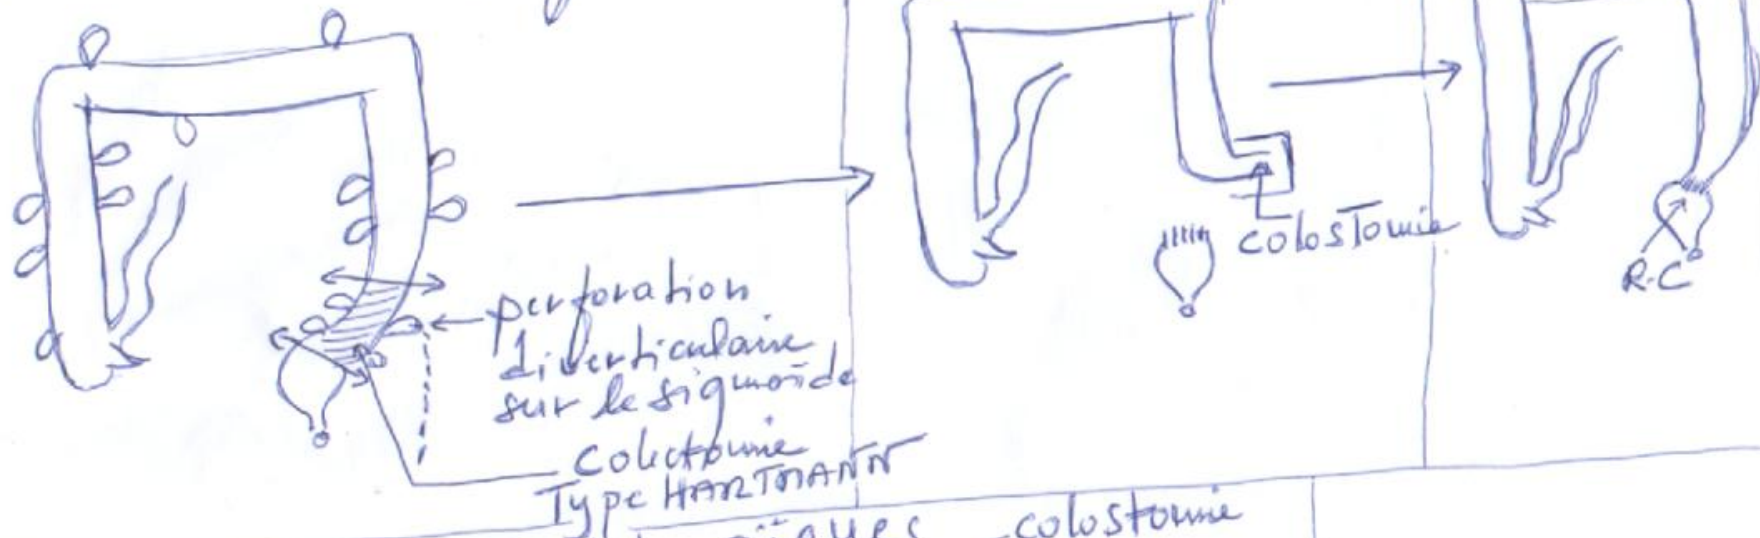 perforation
diverticulaire
sur le sigmoïde
Colectomie
Type HARTMANN
colostomie
R.C
colostomie